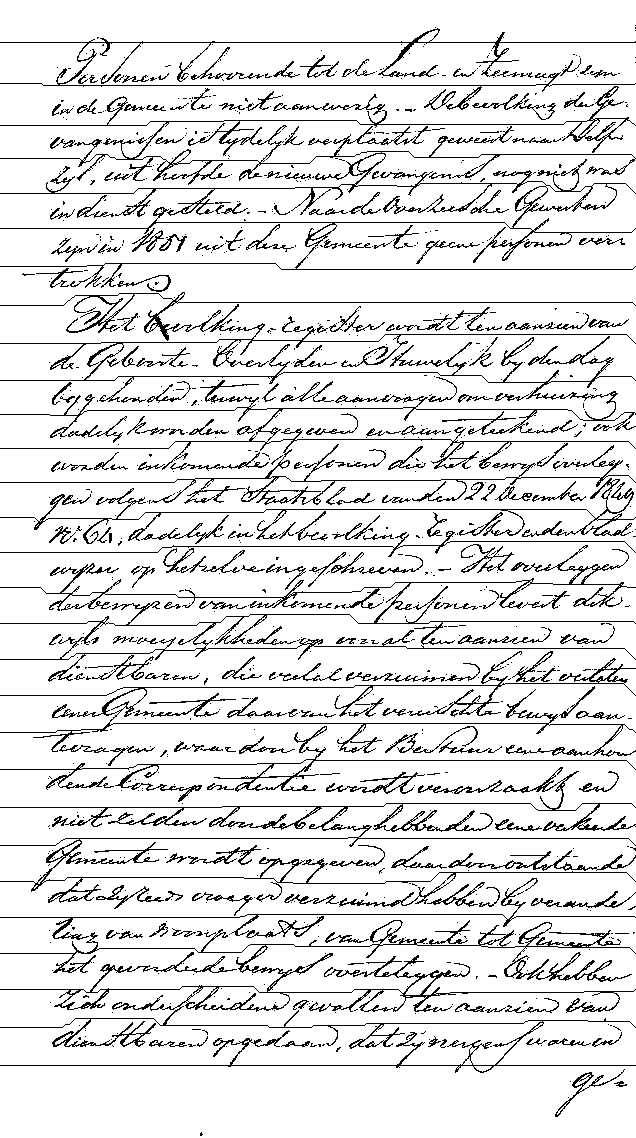 Personen behoorende tot de Land- en Zeemagt zijn
in de Gemeente niet aanwezig. – De bevolking der Ge-
vangenissen is tydelyk verplaatst geweest naar Delf-
zyl, uit hoofde de nieuwe Gevangenis, nog niet was
in dienst gesteld. – Naar de Overzeesche Gewesten
zyn in 1851 uit deze Gemeente geene personen ver-
trokken.
Het bevolking-register wordt ten aanzien van
de Geboorte- Overlyden en Huwelyk by den dag
bygehouden, terwyl alle aanvragen om verhuizing
dadelyk worden afgegeven en aangeteekend; ook
worden inkomende personen die het bewys overleg-
gen volgens het Staatsblad van den 22 December 1849
No. 64, dadelyk in het bevolking-register en den blad-
wyzer op hetzelve ingeschreven. – Het overleggen
der bewyzen van inkomende personen levert dik-
wyls moeyelykheden op vooral ten aanzien van
dienstbaren, die veelal verzuimen by het verlaten
eener Gemeente daarvan het vereischte bewys aan-
tevragen, waardoor by het Bestuur eene aanhou-
dende Correspondentie wordt veroorzaakt en
niet zelden door de belanghebbenden eene verkeerde
Gemeente wordt opgegeven, daardoor ontstaande
dat zy reeds vroeger verzuimd hebben by verande-
ling van woonplaats, van Gemeente tot Gemeente
het gevorderde bewys overteleggen. – Ook hebben
zich onderscheidene gevallen ten aanzien van
dienstbaren opgedaan, dat zy nergens waren in
ge-